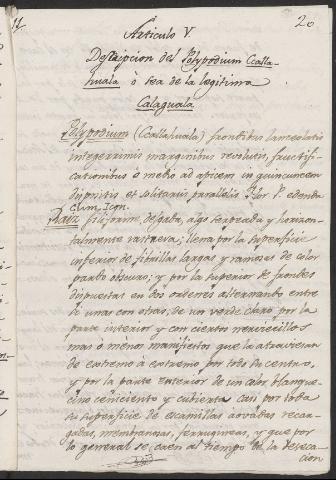 11.
20
Articulo V.
Descripcion del Polypodium Ccalla-
huala ò sea de la legitima
Calaguala
Polypodium (Ccallahuala) frondibus lanceolatis
integerrimis marginibus revolutis, fructifi-
cationibus à medio ad apicem in quincuncem
dispositis et solitariis parallelis Flor. P. edenda
cum Icon.
Raiz filiforme, delgada, algo serpeada y horizon-
talmente rastrera; llena por la superficie
inferior de fibrillas largas y ramosas de color
pardo obscuro; y por la superior de frondes
dispuestas en dos ordenes alternando entre
si unas con otras, de un verde claro por la
parte interior y con ciertos nerviecillos
mas ò menos manifiestos que la atraviesan
de extremo à extremo por todo su centro,
y por la parte exterior de un color blanque-
cino ceniciento y cubierta casi por toda
su superficie de escamillas aovadas recar-
gadas, membranosas, ferrugineas, y que por
lo general se caen al tiempo de la deseca-
cion